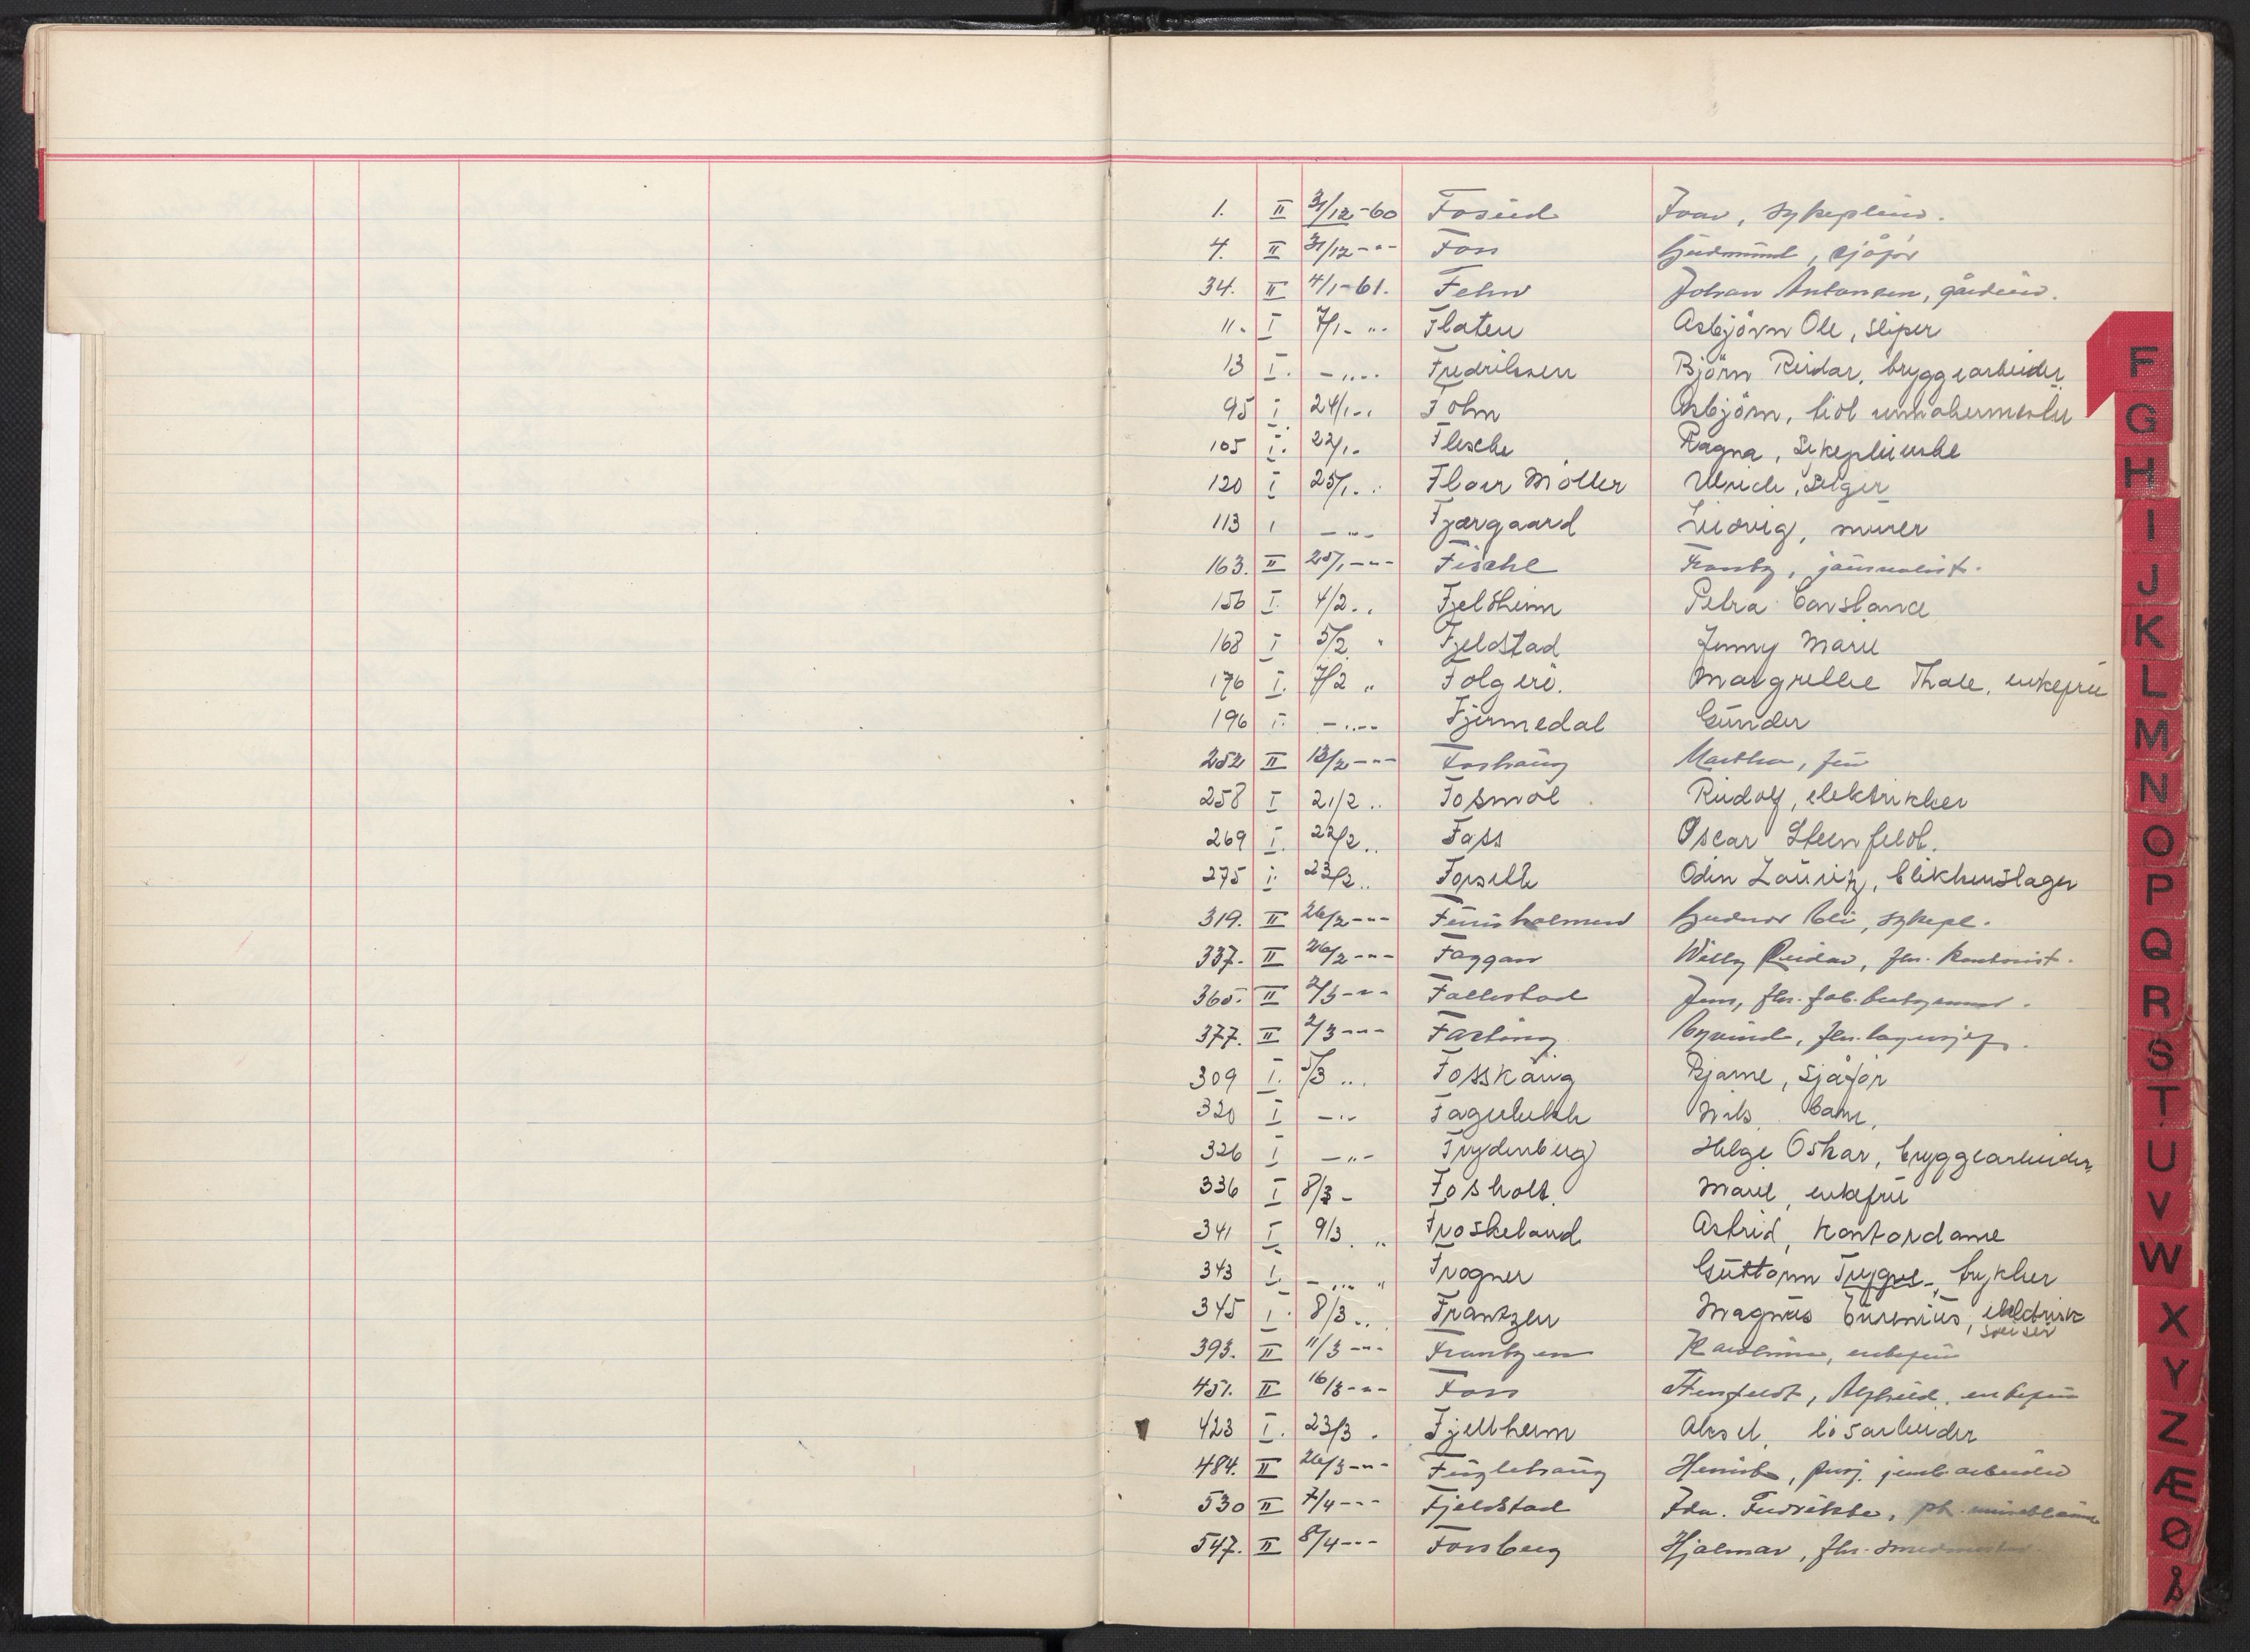 1. II 31/12-60 Fosud Ivar, sykepleier.
4. II 31/12-"- Foss Gudmund, sjåfør
34. II 4/1-61. Fehn Johan Antonsen, gårdeier.
11. I 7/1- ".. Flaten Asbjørn Ole, sliper
13 I. -"-. Fredriksen Bjørn Reidar, bryggearbeider
95 I. 24/1-. Fohn Asbjørn,
105 I. 22/1. Flesche Ragna, Sykepleierske
120 I 25/1. Floer Møller Ulrich, Selger
113 1 -"- Fjærgaard Ludvig, murer
163. II 25/1-"- Fischl Frantz, journalist.
156 I. 4/2.. Fjeldheim Petra Constance
168 I 5/2 " Fjeldstad Jenny Marie
176 I. 7/2 " Folgerø. Margrethe Thale, enkefru
196 I. -"-- Fjermedal Gunder
252 II 13/2-"- Foshaug Martha, fru
258 I 21/2.. Fosmoe Rudolf, elektrikker
269 I. 22/2.. Foss Oscar Steenfeldt.
275 I. 23/2.. Forseth Odin Lauritz, blikkenslager
319. II 26/2-"- Furuholmen Gudnor Eli, sykepl.
337. II 26/2-"- Faggan Willy Reidar, fhv. kontorist.
365. II 2/3-"- Fallestad Jens, fhv. fab.
377. II 2/3-"- Farting Eyvind, fhv. lagersjef.
309 I. 5/3 ... Fosskaug Bjarne, sjåfør
320 I -"- Fagerbekk Nils barn,
326 I -"- Frydenberg Helge Oskar, bryggearbeider
336 I 8/3- Fosholt Marie, enkefru
341 I 9/3. " Froskeland Astrid, Kontordame
343 I. -"- " Frogner Guttorm Trygve, trykker
345 I. 8/3.. Frantzen Magnus elektrisk
sveiser
393. II 11/3-"- Frantzen Karoline, enkefru
451. II 16/3-"- Foss Steenfeldt, Alfhild, enkefru
423 I. 23/3. Fjellheim Aksel, løsarbeider
484. II 26/3-"- Fuglehaug Henrik, pensj. jernb.arbeider
530 II 7/4-"- Fjeldstad Ida Fredrikke,
547. II 8/4-"- Forsberg Hjalmar, fhv. smedmester
F
G
H
I
J
K
L
M
N
O
P
Q
R
S
T
U
V
W
X
Y
Z
Æ
Ø
Å